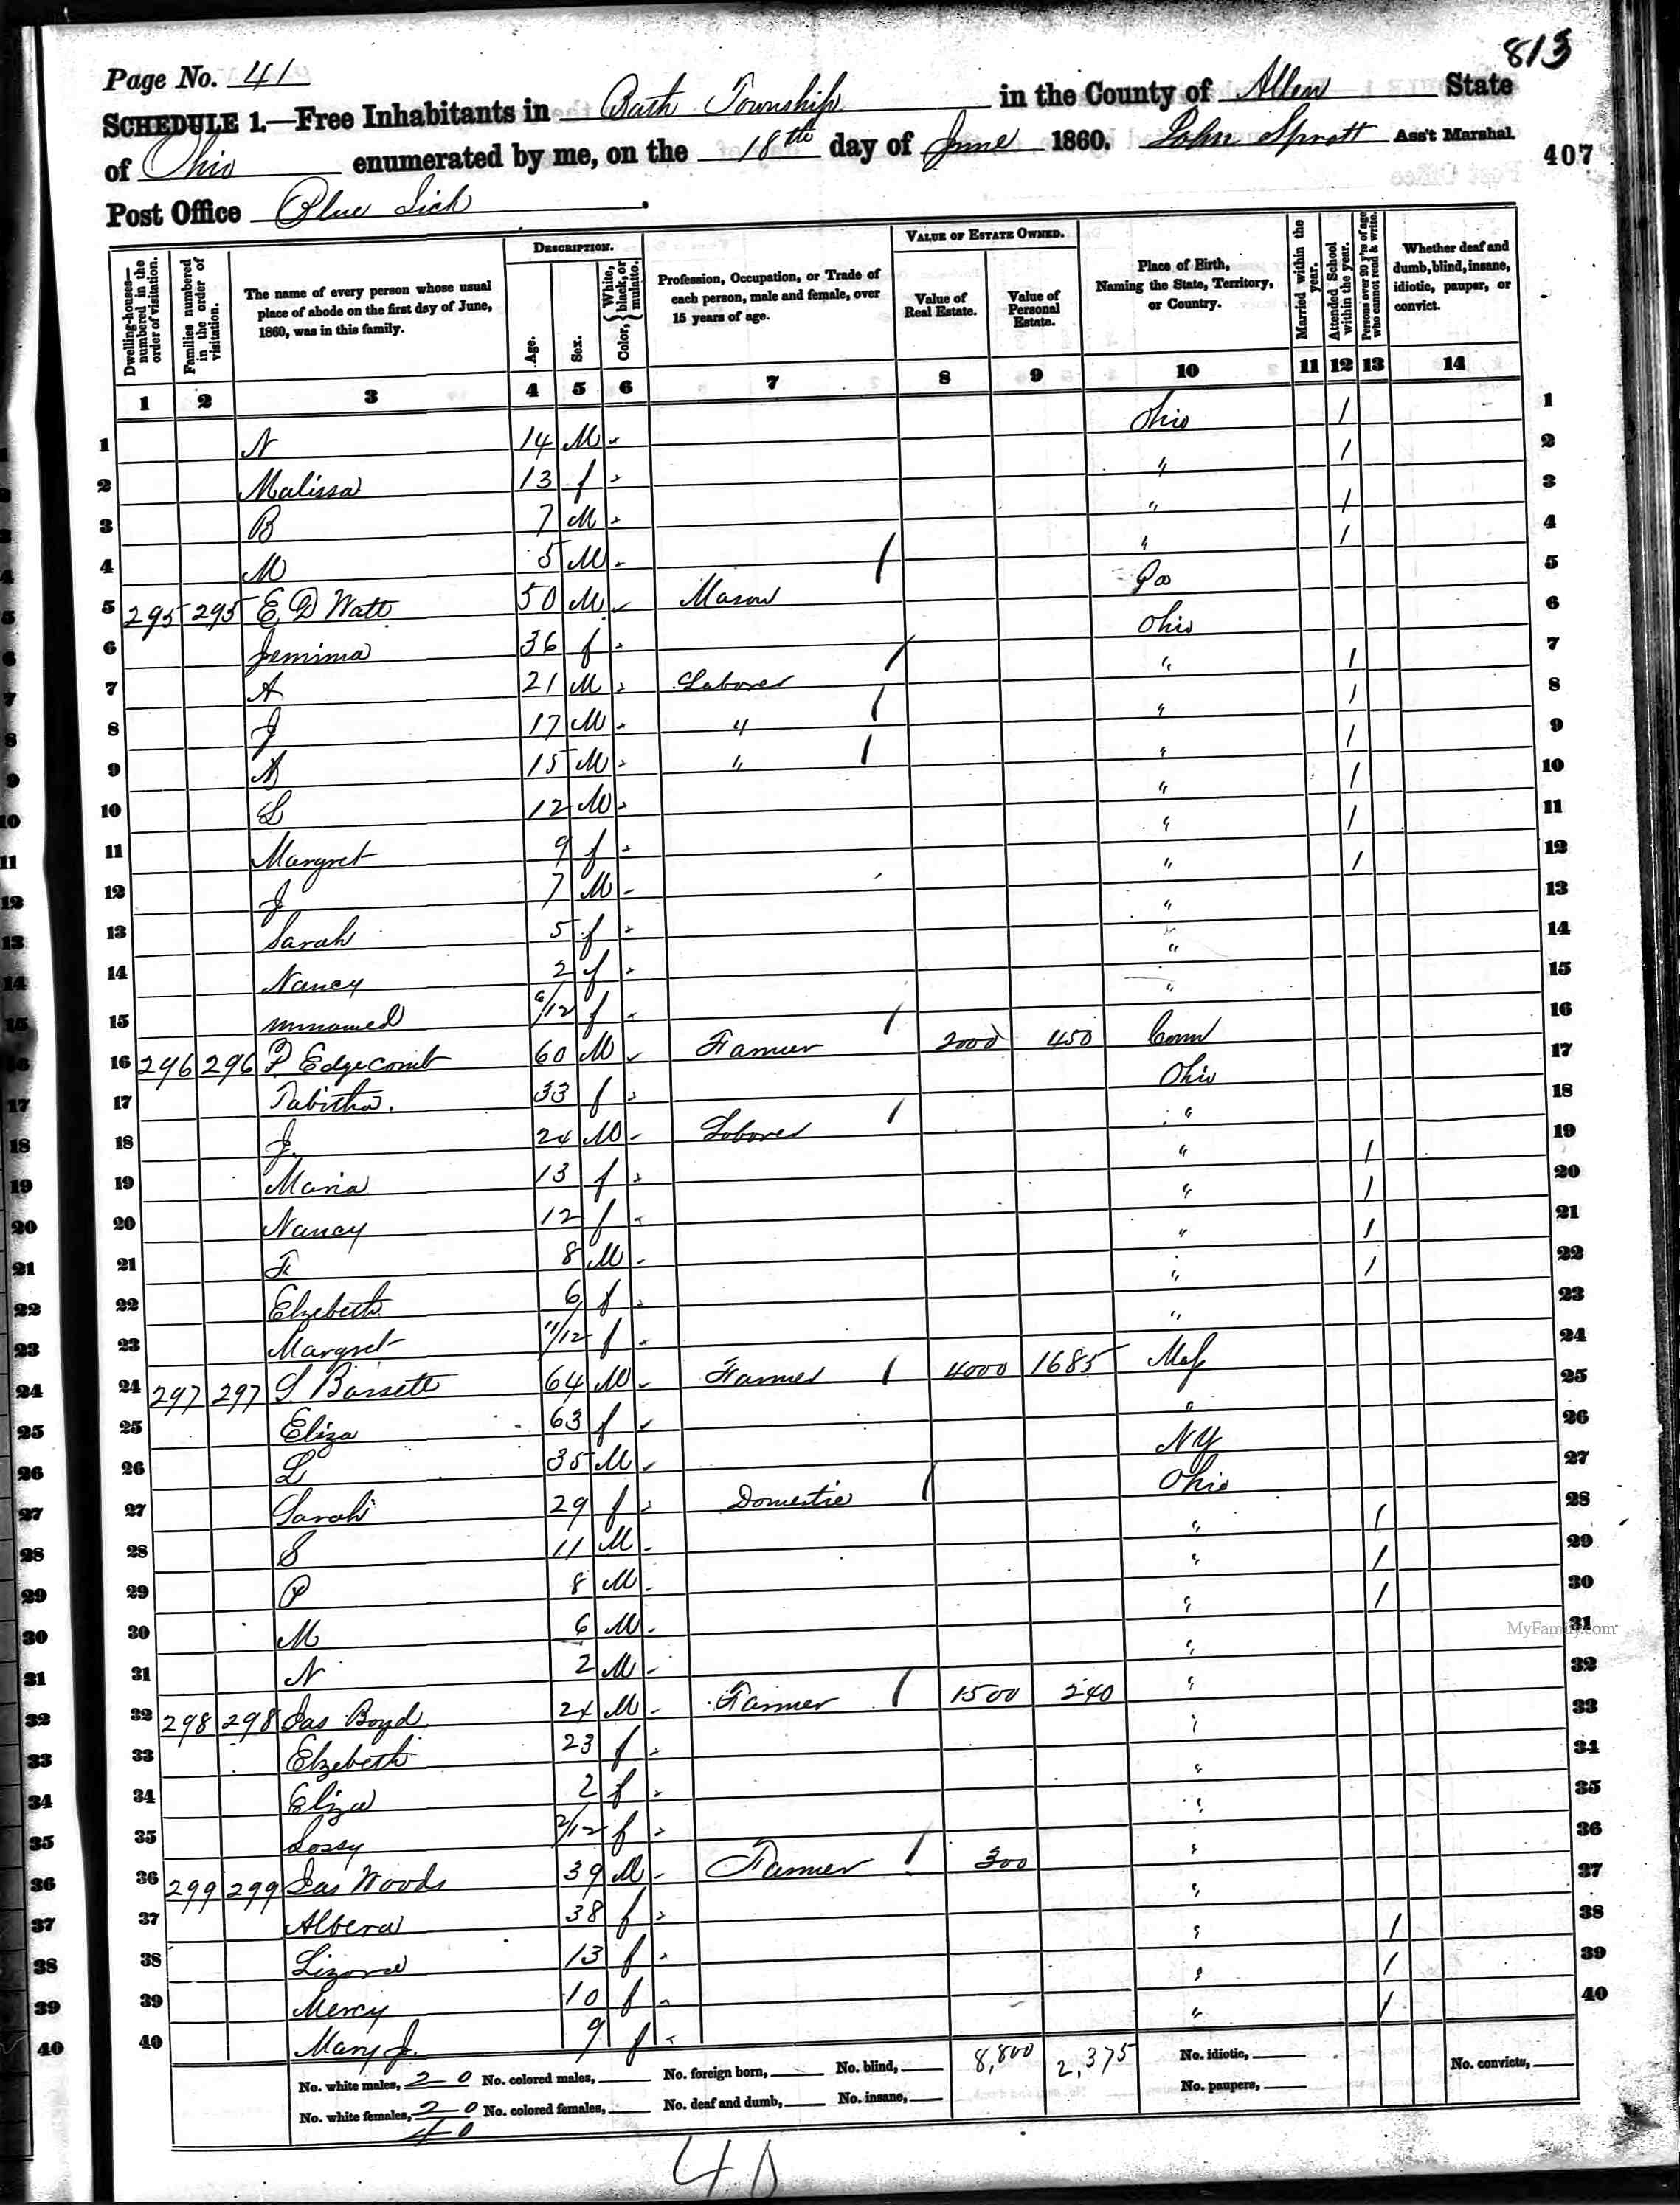 813
Page No. 41
SCHEDULE 1.—Free Inhabitants in Bath Township in the County of Allen State
of Ohio enumerated by me, on the 18th day of June 1860. John Spratt Ass't Marshal.
407
Post Office Blue Lick.
Dwelling-houses—numbered in the order of visitation. Families numbered in the order of visitation. The name of every person whose usual place of abode on the first day of June, 1860, was in this family. DESCRIPTION. Age. Sex. Color, { White, black, or mulatto. Profession, Occupation, or Trade of each person, male and female, over 15 years of age. VALUE OF ESTATE OWNED. Value of Real Estate. Value of Personal Estate. Place of Birth, Naming the State, Territory, or Country. Married within the year. Attended School within the year. Persons over 20 y'rs of age who cannot read & write. Whether deaf and dumb, blind, insane, idiotic, pauper, or convict.
1 2 3 4 5 6 7 8 9 10 11 12 13 14
1 N 14 M Ohio / 1
2 Malissa 13 f " / 2
3 B 7 M " / 3
4 M 5 M " / 4
5 295 295 E D Watt 50 M Mason / Pa 5
6 Jemima 36 f Ohio 6
7 A 21 M Laborer / " / 7
8 J 17 M " / " / 8
9 15 M " / " / 9
10 L 12 M " / 10
11 Margret 9 f " / 11
12 J 7 M " / 12
13 Sarah 5 f " 13
14 Nancy 2 f " 14
15 unnamed /12 f " 15
16 296 296 Edgecomb 60 M Farmer / 2000 450 Conn 16
17 Tabitha. 33 f Ohio 17
18 J. 24 M Laborer / " 18
19 Maria 13 f " / 19
20 Nancy 12 f " / 20
21 F 8 M " / 21
22 Elzebeth 6 f " / 22
23 Margret 11/12 f " 23
24 297 297 S Bassett 64 M Farmer / 4000 1685 Mas 24
25 Eliza 63 f " 25
26 L 35 M NY 26
27 Sarah 29 f Domestic / Ohio 27
28 S 11 M " / 28
29 P 8 M " / 29
30 M 6 M " / 30
31 N 2 M " 31
MyFamily.com
32 298 298 Jas Boyd 24 M Farmer / 1500 240 " 32
33 Elzebeth 23 f " 33
34 Eliza 2 f " 34
35 Lossy 2/12 f " 35
36 299 299 Jas Woods 39 M Farmer / 300 " 36
37 Albera 38 f " 37
38 Lizora 13 f " / 38
39 Mercy 10 f " / 39
40 Mary J. 9 f " / 40
No. white males, 20 No. colored males, No. foreign born, No. blind, 8,800 2,375 No. idiotic, No. convicts,
No. white females, 20 No. colored females, No. deaf and dumb, No. insane, No. paupers,
40
40